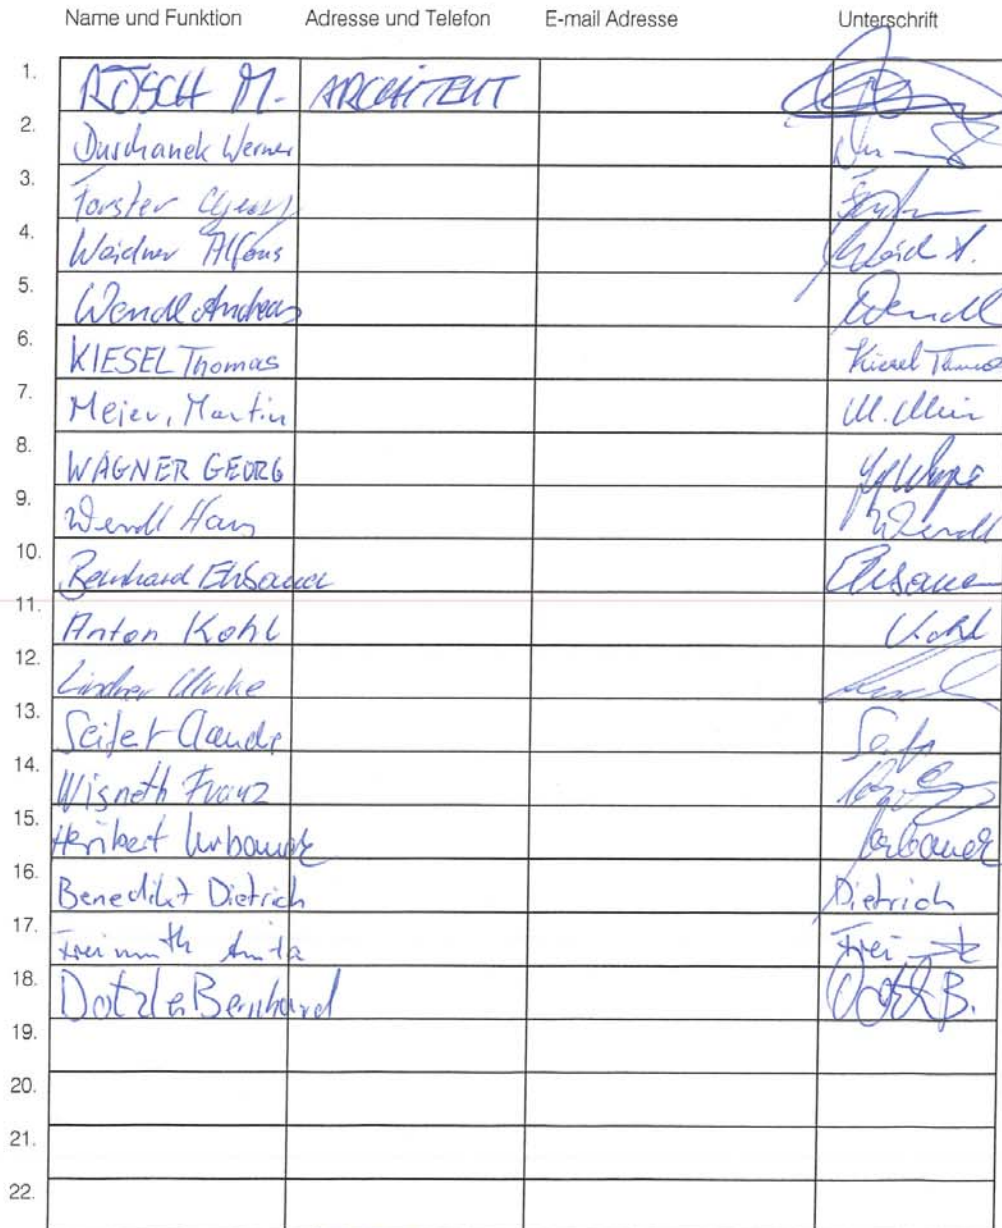 Name und Funktion Adresse und Telefon E-mail Adresse Unterschrift
1. RÖSCH M. ARCHITEKT
2. Duschanek Werner
3. Forster
4. Weidner Alfons Weid A.
5. Wendl Andreas Wendl
6. KIESEL Thomas Kiesel Thomas
7. Meier, Martin M. Meier
8. WAGNER GEORG
9. Wendl Hans Wendl
10. Bernhard Ehbauer
11. Anton Kohl Kohl
12. Lindner Ulrike
13. Seifert Claudi
14. Wisneth Franz
15. Heribert Urbanek Urbanek
16. Benedikt Dietrich Dietrich
17. Freimuth Anita
18. Dotzler Bernhard B.
19.
20.
21.
22.